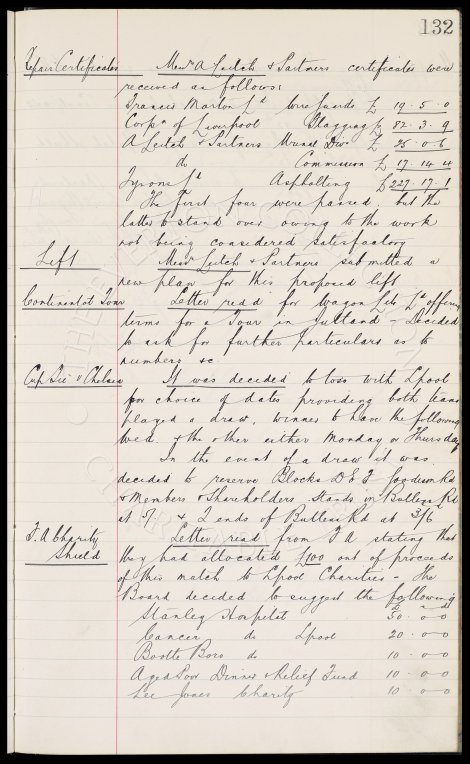 132
Repair Certificates Messrs A Leitch & Partners certificates were
received as follows:
Francis Morton Ld Wire Guards £ 19. 5. 0
Corpn of Liverpool Flagging £ 82. 3. 9
A Leitch & Partners Urinal Divn £ 25. 0. 6
do Commission £ 17. 14 4
Tyrons Ld Asphalting £ 227. 17. 1
The first four were passed, but the
latter to stand over owing to the work
not being considered satisfactory
Lift Messrs Leitch & Partners submitted a
new plan for this proposed lift
Continental Tour Letter read for Wagon Lits Ld offering
terms for a Tour in Jutland – Decided
to ask for further particulars as to
numbers &c.
Cup Tie v Chelsea It was decided to toss with Lpool
for choice of dates providing both teams
played a draw, winner to have the following
Wed. & the other either Monday or Thursday
In the event of a draw it was
decided to reserve Blocks D E F Goodison Rd
& Members & Shareholders Stands in Bullens Rd
at 5/- & 2 ends of Bullens Rd at 3/6
F. A Charity Letter read from F A stating that
Shield they had allocated £100 out of proceeds
of this match to Lpool Charities – The
Board decided to suggest the following
£ s d
Stanley Hospital 50. 0 0
Cancer do Lpool 20. 0 0
Bootle Boro do 10. 0 0
Aged Poor Dinner & Relief Fund 10. 0 0
Lee Jones Charity 10. 0 0